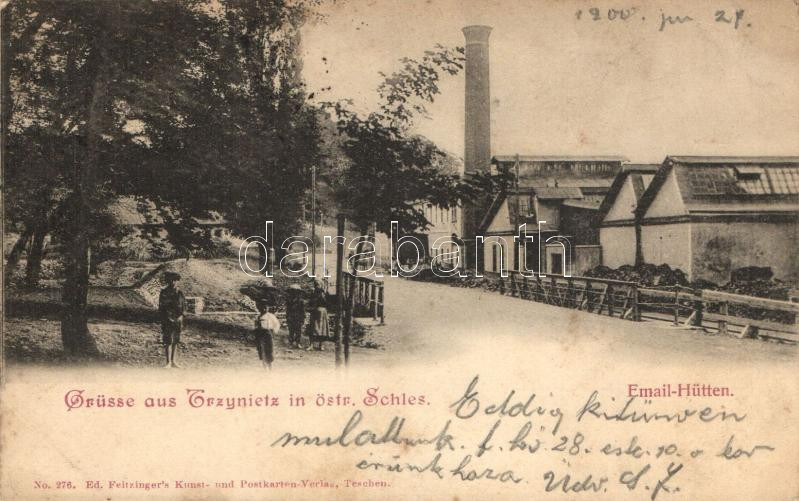 1900. jun 27.
darabanth
Grüsse aus Trzynietz in östr. Schles.
Email-Hütten.
Eddig kitünően
mulattunk. f. hó 28. este 10. o kor
érünk haza. Üdv.
No. 276. Ed. Feitzinger's Kunst- und Postkarten-Verlag, Teschen.